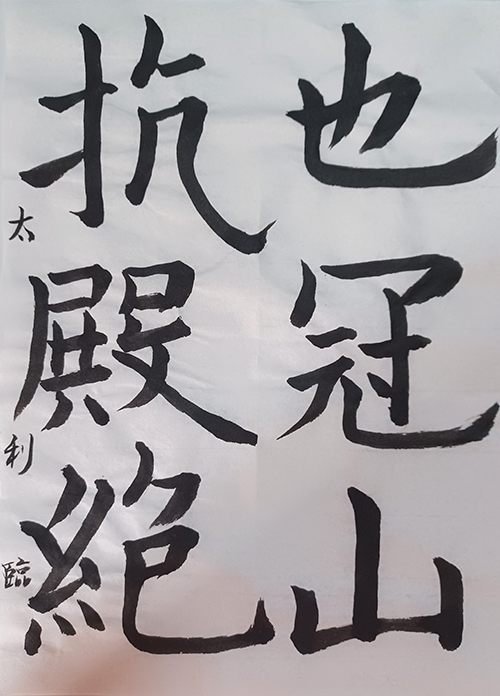 也冠山
抗殿絶
太利臨